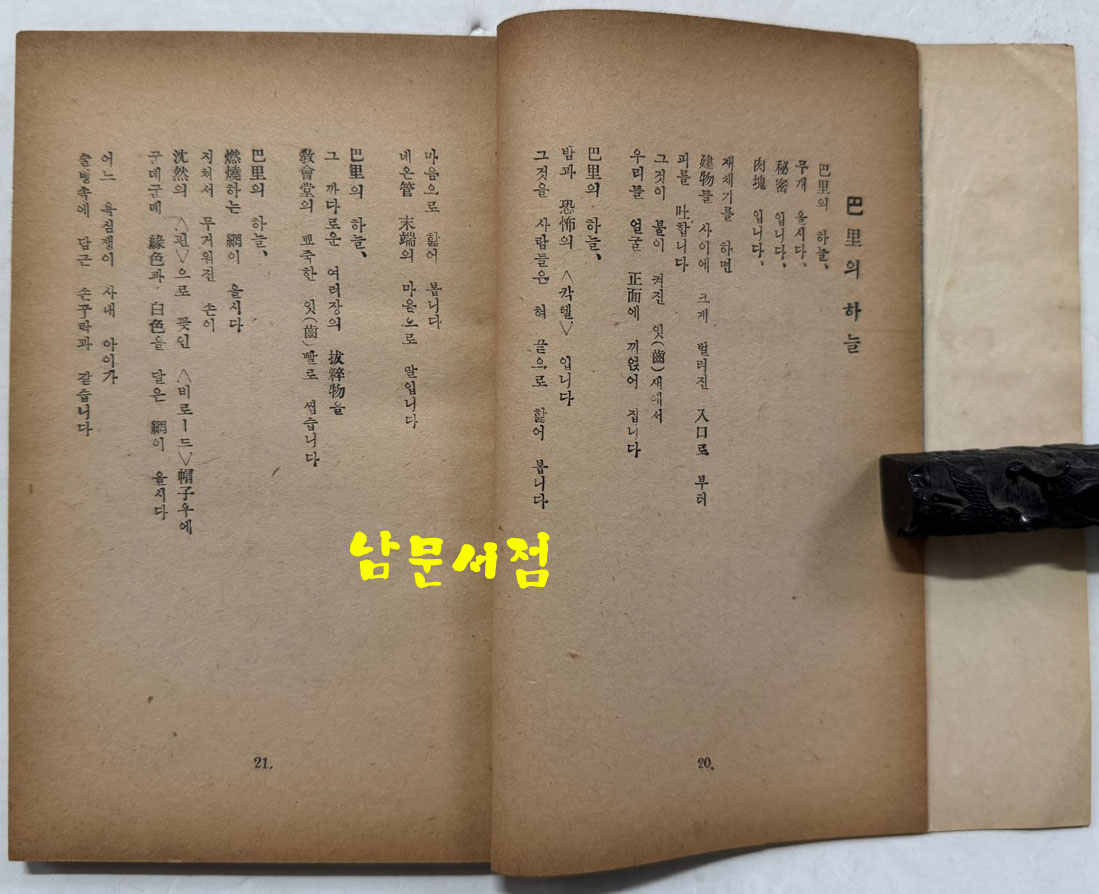 巴里의 하늘
巴里의 하늘、
무개 올시다、
秘密 입니다、
肉塊 입니다、
재채기를 하면
建物들 사이에 크게 벌려진 入口로 부터
피를 吐합니다
그것이 불이 켜진 잇(齒)새에서
우리들 얼굴 正面에 끼얹어 집니다
巴里의 하늘、
밤과 恐怖의 〈칵텔〉 입니다
그것을 사람들은 혀 끝으로 핥어 봅니다
20.
마음으로 핥어 봅니다
네온管 末端의 마음으로 말입니다
巴里의 하늘、
그 까다로운 여러장의 拔粹物을
敎會堂의 뾰죽한 잇(齒)빨로 씹습니다
巴里의 하늘、
燃燒하는 網이 올시다
지쳐서 무거워진 손이
沈然의 〈핀〉으로 꽂인 〈비로ー드〉帽子우에
군데군데 綠色과 白色을 달은 網이 올시다
어느 욕심쟁이 사내 아이가
술병속에 담근 손구락과 같습니다
21.
남문서점